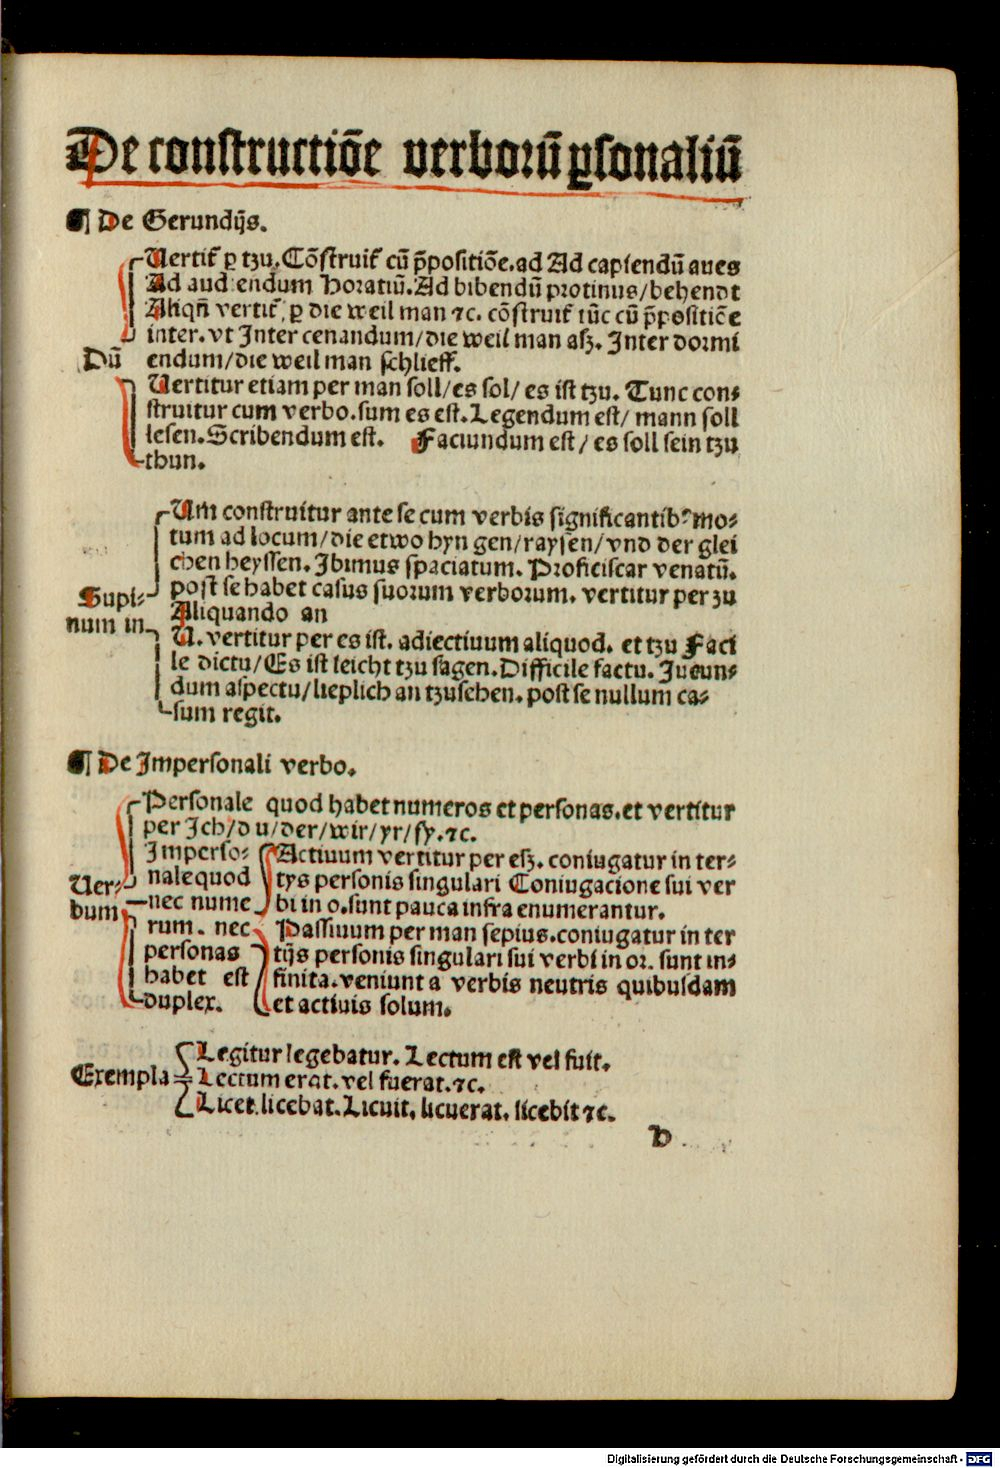 De constructiōe verborū ꝑsonaliū
¶ De Gerundijs.
Vertit᷑ ꝑ tzu. Cōstruit᷑ cū p̄positiōe. ad Ad capiendū aues
Ad audiendum Horatiū. Ad bibendū protinus/behendt
Aliqñ vertit᷑ ꝑ die weil man ⁊c. cōstruit᷑ tūc cū p̄positiōe
inter. vt Inter cenandum/die weil man aß. Inter dormi
Dū
endum/die weil man schlieff.
Vertitur etiam per man soll/es sol/ es ist tzu. Tunc con⸗
struitur cum verbo. sum es est. Legendum est/ mann soll
lesen. Scribendum est. Faciundum est/ es soll sein tzu
thun.
Um construitur ante se cum verbis significantibꝰ mo⸗
tum ad locum/die etwo hyn gen/raysen/vnd der glei
chen heyssen. Ibimus spaciatum. Proficiscar venatū.
Supi⸗
post se habet casus suorum verborum. vertitur per zu
Aliquando an
num in
U. vertitur per es ist. adiectiuum aliquod. et tzu Faci
le dictu/Es ist leicht tzu sagen. Difficile factu. Jucun⸗
dum aspectu/lieplich an tzusehen. post se nullum ca⸗
sum regit.
¶ De Impersonali verbo.
Personale quod habet numeros et personas. et vertitur
per Ich/du/der/wir/yr/sy. ⁊c.
Imperso⸗ Actiuum vertitur per eß. coniugatur in ter⸗
Ver⸗ nale quod tys personis singulari Coniugacione sui ver
bum nec nume bi in o. sunt pauca infra enumerantur.
rum. nec Passiuum per man sepius. coniugatur in ter
personas tijs personis singulari sui verbi in or. sunt in⸗
habet est finita. veniunt a verbis neutris quibusdam
duplex. et actiuis solum.
Legitur legebatur. Lectum est vel fuit.
Exempla Lectum erat. vel fuerat. ⁊c.
Licet. licebat. Licuit. licuerat. licebit ⁊c.
b
Digitalisierung gefördert durch die Deutsche Forschungsgemeinschaft - DFG